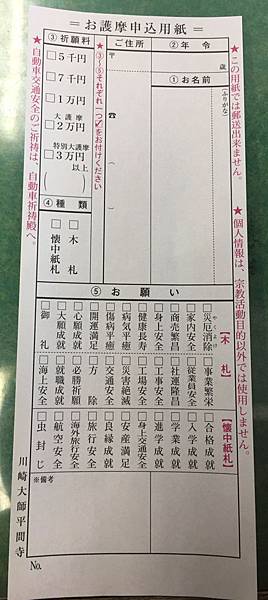 ＝お護摩申込用紙＝
★この用紙では郵送出来ません。
★個人情報は、宗教活動目的以外では使用しません。
②年令
歳
①お名前
(ふりがな)
ご住所
〒
☎ ( )
★③〜⑤それぞれ一つ✓をお付けください
③祈願料
□5千円
□7千円
□1万円
大護摩
□2万円
特別大護摩
□3万円
(以上)
④種類
□木札
□懐中紙札
★自動車交通安全のご祈祷は、自動車祈祷殿へ。
⑤お願い
【木札】
やくよけ
□災厄消除
□家内安全
□商売繁昌
□身上安全
□健康長寿
□病気平癒
□傷病平癒
□開運満足
□心願成就
□大願成就
□御礼
□事業繁栄
□従業員安全
□社運隆昌
□工事安全
□工場安全
□災害絶滅
□交通安全
□方除
□必勝祈願
□就職成就
□海上安全
【懐中紙札】
□合格成就
□入学成就
□学業成就
□進学成就
□身上交通安全
□安産満足
□良縁成就
□旅行安全
□海外旅行安全
□航空安全
□虫封じ
※備考
川崎大師平間寺
No.